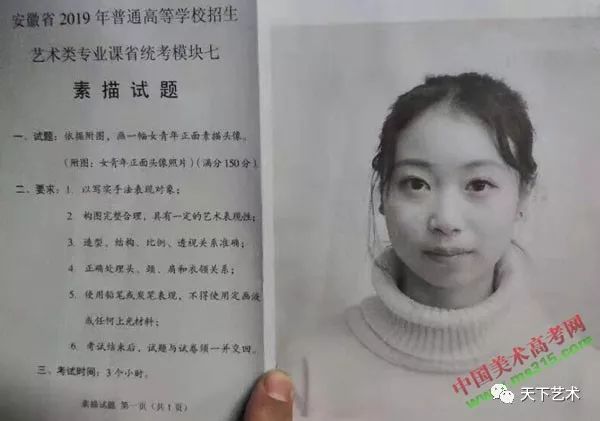 安徽省2019年普通高等学校招生
艺术类专业课省统考模块七
素描试题
一、试题：依据附图，画一幅女青年正面素描头像。
（附图：女青年正面头像照片）（满分150分）
二、要求：1. 以写实手法表现对象；
2 构图完整合理，具有一定的艺术表现性；
3. 造型、结构、比例、透视关系准确；
4. 正确处理头、颈、肩和衣领关系；
5. 使用铅笔或炭笔表现，不得使用定画液
或任何上光材料；
6. 考试结束后，试题与试卷须一并交回。
三、考试时间：3个小时。
素描试题 第一页（共1页）
中国美术高考网
www.ms315.com
天下艺术